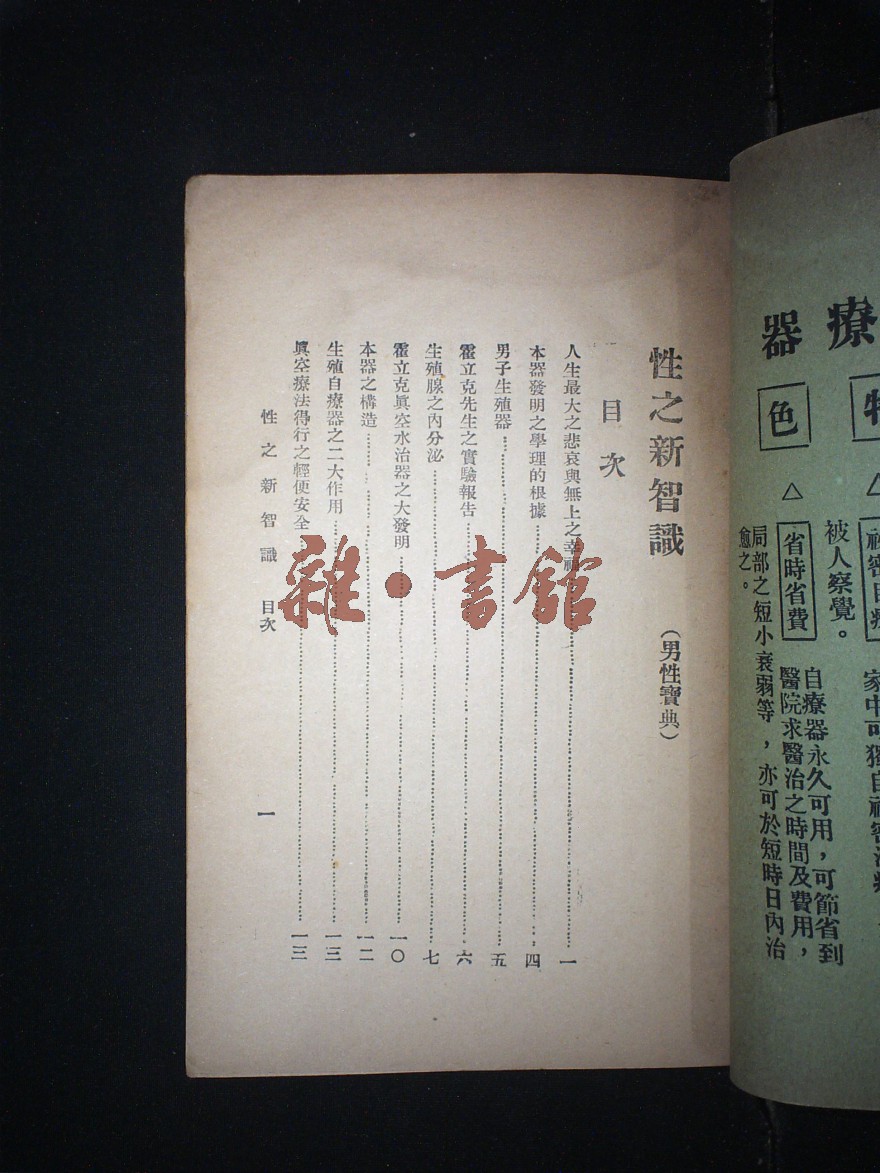 療器
特色
△
祕密自療
家中可獨自祕密治療
被人察覺。
△
省時省費
自療器永久可用，可節省到
醫院求醫治之時間及費用，
局部之短小衰弱等，亦可於短時日內治
愈之。
性之新智識（男性寶典）
目次
人生最大之悲哀與無上之幸福……一
本器發明之學理的根據……四
男子生殖器……五
霍立克先生之實驗報告……六
生殖腺之內分泌……七
霍立克眞空水治器之大發明……一〇
本器之構造……一二
生殖自療器之二大作用……一三
眞空療法得行之輕便安全……一三
性之新智識 目次
一
雜·書館